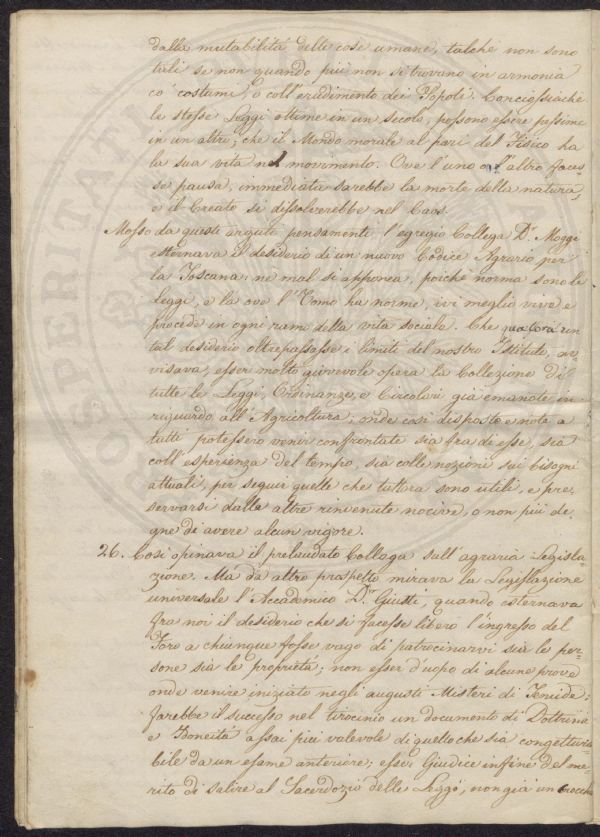 dalla mutabilità delle cose umane, talchè non sono
tali se non quando più non si trovano in armonia
co' costumi, o coll'erudimento dei Popoli. Conciossiachè
le stesse Leggi ottime in un secolo, possono essere pessime
in un altro; che il Mondo morale al pari del Fisico ha
la sua vita nel movimento. Ove l'uno o l'altro faces-
se pausa, immediata sarebbe la morte della natura,
e il Creato si dissolverebbe nel Caos.
Mosso da questi arguti pensamenti l'egregio Collega D.r Moggi
esternava il desiderio di un nuovo Codice Agrario per
la Toscana: nè mal si apponea, poichè norma sono le
Leggi, e la ove l'Uomo ha norme, ivi meglio vive e
procede in ogni ramo della vita sociale. Che qualora un
tal desiderio oltrepassasse i limiti del nostro Istituto, av-
visava, esser molto giovevole opera la Collezione di
tutte le Leggi, Ordinanze, e Circolari già emanate in
riguardo all'Agricoltura, onde così disposte e note a
tutti potessero venir confrontate sia fra di esse, sia
coll'esperienza del tempo, sia colle nozioni sui bisogni
attuali, per seguir quelle che tuttora sono utili, e pre-
servarsi dalle altre rinvenute nocive, o non più de-
gne di avere alcun vigore.
26. Così opinava il prelaudato Collega sull'agraria Legisla-
zione. Ma da altro prospetto mirava la Legislazione
universale l'Accademico D.r Giusti, quando esternava
fra noi il desiderio che si facesse libero l'ingresso del
Foro a chiunque fosse vago di patrocinarvi sia le per-
sone sia le proprietà; non esser d'uopo di alcune prove
onde venire iniziato negli augusti Misteri di Temide:
farebbe il successo nel tirocinio un documento di Dottrina
e Idoneità assai più valevole di quello che sia congettura-
bile da un esame anteriore; esser Giudice infine del me-
rito di salire al Sacerdozio delle Leggi, non già un